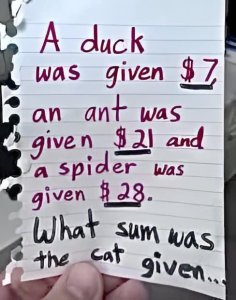 A duck
was given $7,
an ant was
given $21 and
a spider was
given $28.
What sum was
the cat given...